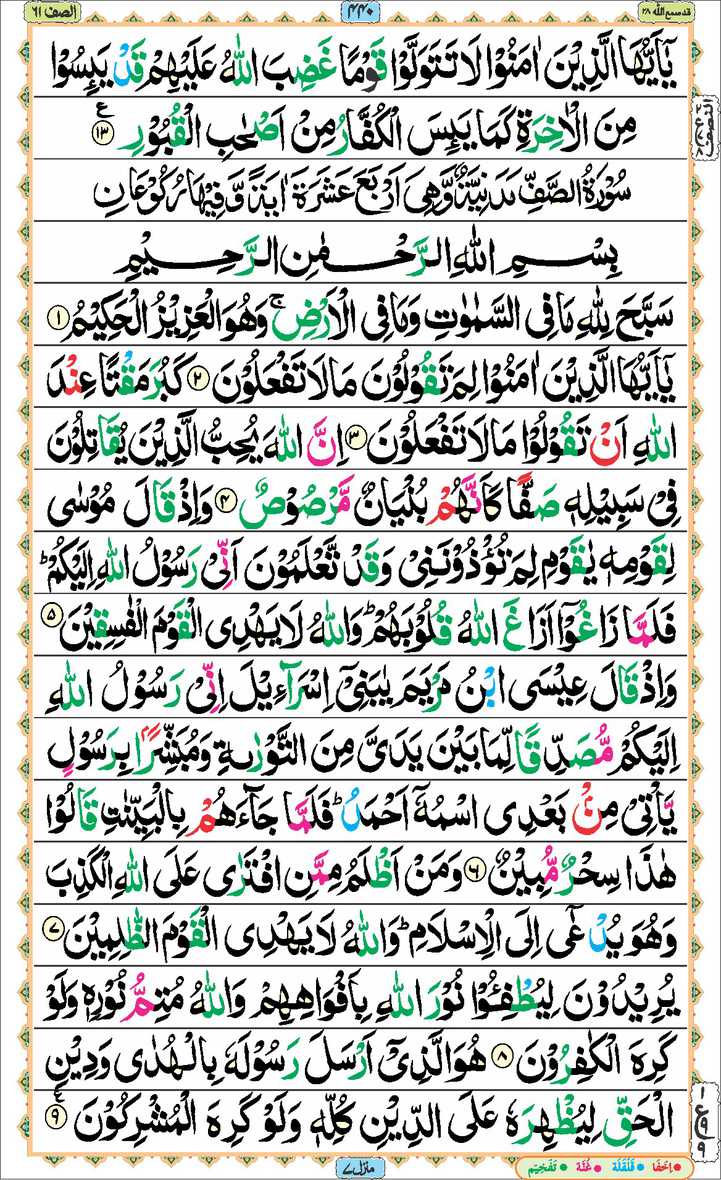 قد سمع الله ٢٨ ٤٤٠ الصف ٦١
يٰۤاَيُّهَا الَّذِيْنَ اٰمَنُوْا لَا تَتَوَلَّوْا قَوْمًا غَضِبَ اللّٰهُ عَلَيْهِمْ قَدْ يَىِٕسُوْا
مِنَ الْاٰخِرَةِ كَمَا يَىِٕسَ الْكُفَّارُ مِنْ اَصْحٰبِ الْقُبُوْرِ ١٣ ع
سُوْرَةُ الصَّفِّ مَدَنِيَّةٌ وَّهِيَ اَرْبَعَ عَشَرَةَ اٰيَةً وَّفِيْهَا رُكُوْعَانِ
بِسْمِ اللّٰهِ الرَّحْمٰنِ الرَّحِيْمِ
سَبَّحَ لِلّٰهِ مَا فِى السَّمٰوٰتِ وَمَا فِى الْاَرْضِ ۚ وَهُوَ الْعَزِيْزُ الْحَكِيْمُ ١
يٰۤاَيُّهَا الَّذِيْنَ اٰمَنُوْا لِمَ تَقُوْلُوْنَ مَا لَا تَفْعَلُوْنَ ٢ كَبُرَ مَقْتًا عِنْدَ
اللّٰهِ اَنْ تَقُوْلُوْا مَا لَا تَفْعَلُوْنَ ٣ اِنَّ اللّٰهَ يُحِبُّ الَّذِيْنَ يُقَاتِلُوْنَ
فِىْ سَبِيْلِهٖ صَفًّا كَاَنَّهُمْ بُنْيَانٌ مَّرْصُوْصٌ ٤ وَاِذْ قَالَ مُوْسٰى
لِقَوْمِهٖ يٰقَوْمِ لِمَ تُؤْذُوْنَنِىْ وَقَدْ تَّعْلَمُوْنَ اَنِّىْ رَسُوْلُ اللّٰهِ اِلَيْكُمْ ؕ
فَلَمَّا زَاغُوْۤا اَزَاغَ اللّٰهُ قُلُوْبَهُمْ ؕ وَاللّٰهُ لَا يَهْدِى الْقَوْمَ الْفٰسِقِيْنَ ٥
وَاِذْ قَالَ عِيْسَى ابْنُ مَرْيَمَ يٰبَنِىْۤ اِسْرَآءِيْلَ اِنِّىْ رَسُوْلُ اللّٰهِ
اِلَيْكُمْ مُّصَدِّقًا لِّمَا بَيْنَ يَدَىَّ مِنَ التَّوْرٰىةِ وَمُبَشِّرًۢا بِرَسُوْلٍ
يَّاْتِىْ مِنْۢ بَعْدِى اسْمُهٗۤ اَحْمَدُ ؕ فَلَمَّا جَآءَهُمْ بِالْبَيِّنٰتِ قَالُوْا
هٰذَا سِحْرٌ مُّبِيْنٌ ٦ وَمَنْ اَظْلَمُ مِمَّنِ افْتَرٰى عَلَى اللّٰهِ الْكَذِبَ
وَهُوَ يُدْعٰۤى اِلَى الْاِسْلَامِ ؕ وَاللّٰهُ لَا يَهْدِى الْقَوْمَ الظّٰلِمِيْنَ ٧
يُرِيْدُوْنَ لِيُطْفِـُٔوْا نُوْرَ اللّٰهِ بِاَفْوَاهِهِمْ وَاللّٰهُ مُتِمُّ نُوْرِهٖ وَلَوْ
كَرِهَ الْكٰفِرُوْنَ ٨ هُوَ الَّذِىْۤ اَرْسَلَ رَسُوْلَهٗ بِالْهُدٰى وَدِيْنِ
الْحَقِّ لِيُظْهِرَهٗ عَلَى الدِّيْنِ كُلِّهٖ وَلَوْ كَرِهَ الْمُشْرِكُوْنَ ٩ ع
منزل ٧
اِخفَا قَلْقَلَة غُنَّة تَفْخِيْم